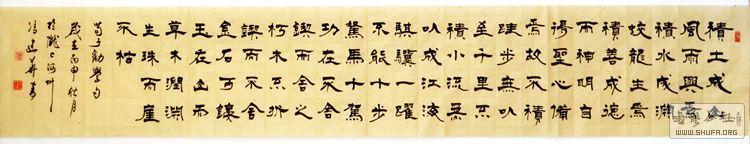 積土成山
風雨興焉
積水成渊
蛟龍生焉
積善成德
而神明自
得聖心備
焉故不積
跬步無以
至千里不
積小流無
以成江流
騏驥一躍
不能十步
駑馬十駕
功在不舍
鍥而舍之
朽木不折
鍥而不舍
金石可鏤
玉在山而
草木潤渊
生珠而崖
不枯
荀子勸學句
歲在丙申秋月
於隴上河州
馮建
書
WWW.SHUFA.ORG